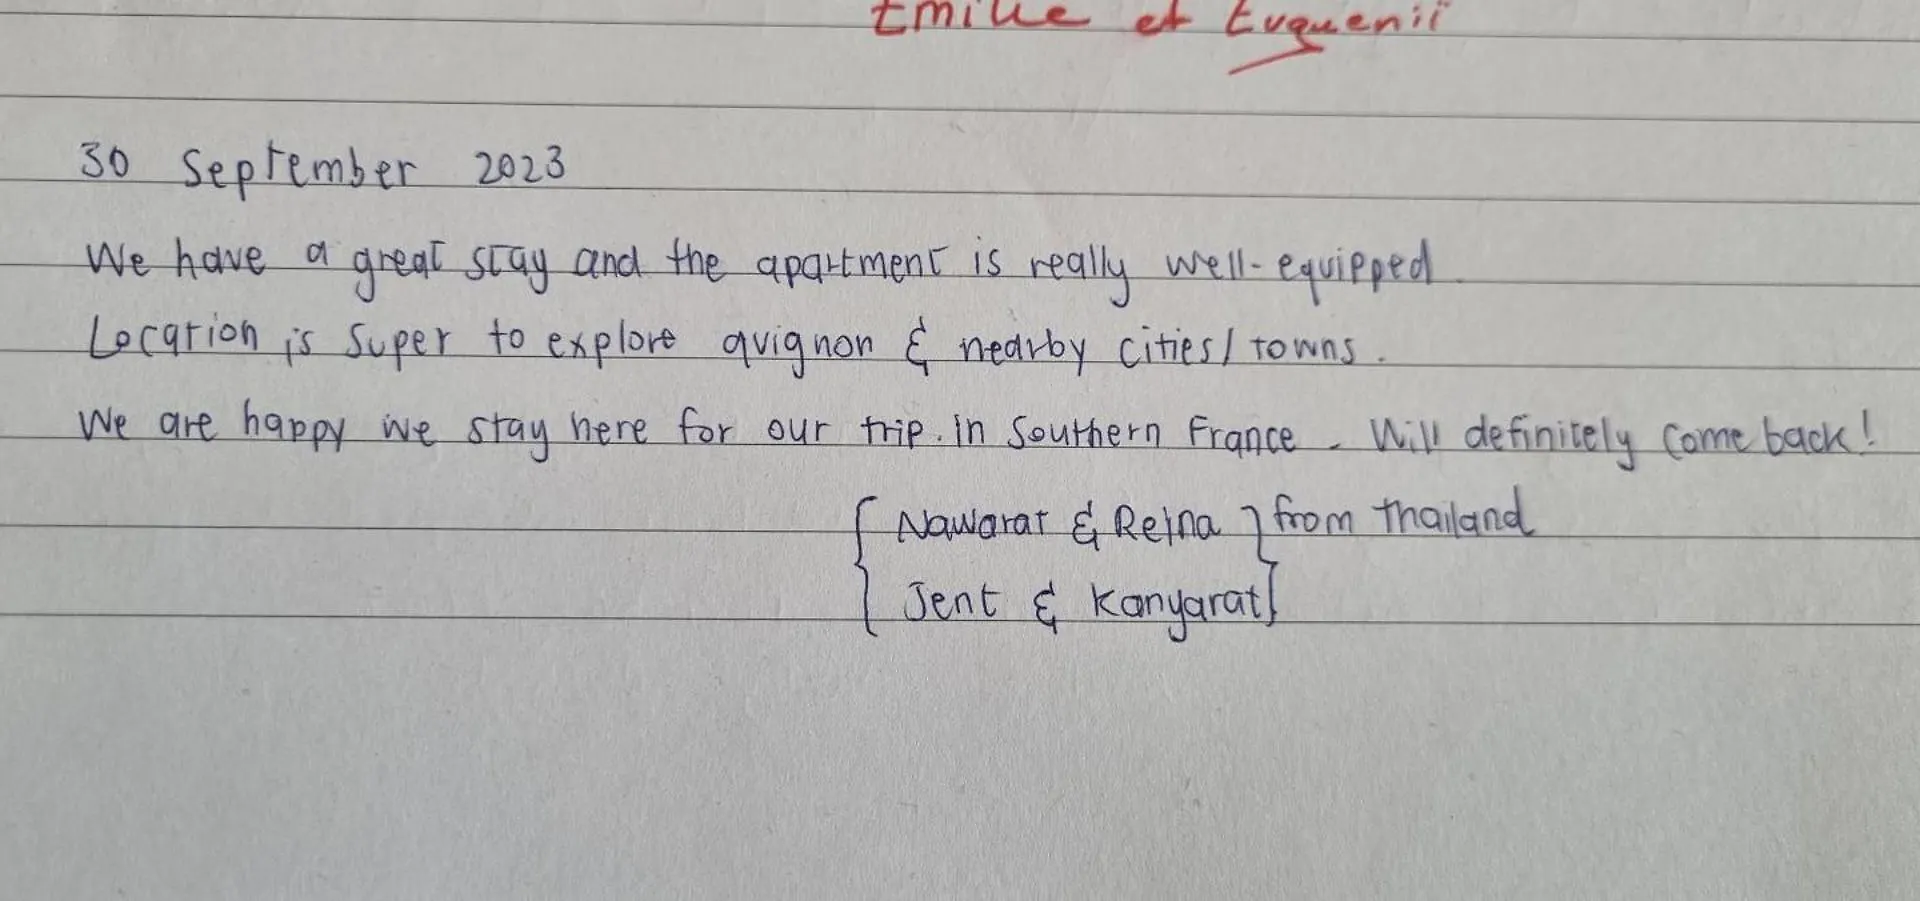 Emilie et Evguenii
30 September 2023
We have a great stay and the apartment is really well-equipped
Location is super to explore avignon & nearby cities/towns.
We are happy we stay here for our trip in Southern France. Will definitely come back!
{ Nawarat & Reina } from Thailand
{ Jent & Kanyarat }